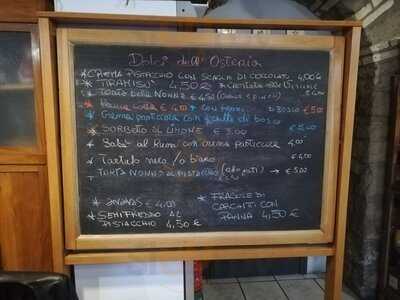 Dolci dell'Osteria
* CREMA PISTACCHIO CON SCAGLIE DI CIOCCOLATO 4,00€
* TIRAMISU' 4,50€
* Torta della Nonna € 4,50 € 4,00
* Panna cotta € 4,00 + con frutti di bosco € 5,00
* Crema pasticcera con frutti di bosco
* SORBETTO AL LIMONE € 3,00 €
* Babà al Rum con crema pasticcera 4,00
* Tartufo nero / o bianco € 4,00
TORTA NONNA AL PISTACCHIO → € 5,00
* ANANAS € 4,00
* SEMIFREDDO AL
PISTACCHIO 4,50 €
* FRAGOLE DI
CON
PANNA 4,50 €